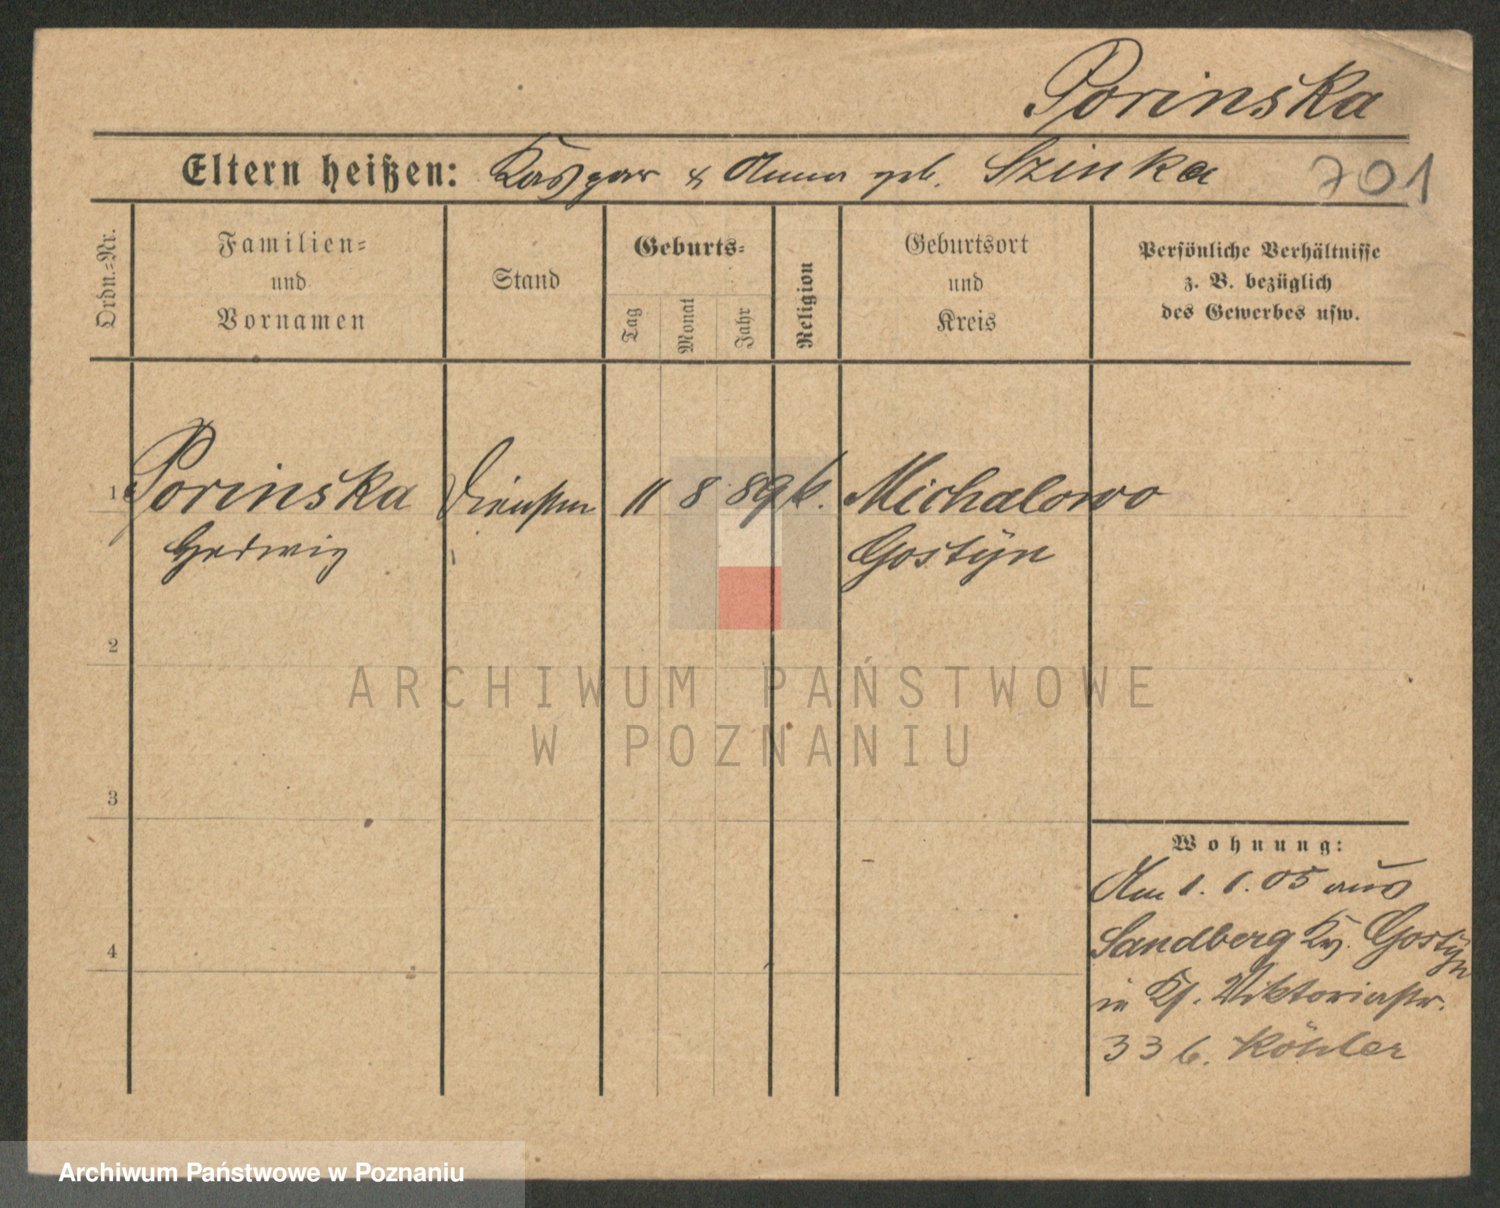 Porinska
Eltern heißen: Kaspar & Anna geb. Szinka 701
Ordn.-Nr.
Familien-
und
Vornamen
Stand
Geburts-
Tag
Monat
Jahr
Religion
Geburtsort
und
Kreis
Persönliche Verhältnisse
z. B. bezüglich
des Gewerbes usw.
1 Porinska 11 8 89 k. Michalowo
Hedwig Gostÿn
2
ARCHIWUM PAŃSTWOWE
W POZNANIU
3
Wohnung:
Am 1. 1. 05 aus
Sandberg Kr. Gostÿn
4
in Viktoriastr.
33 b. Köhler
Archiwum Państwowe w Poznaniu